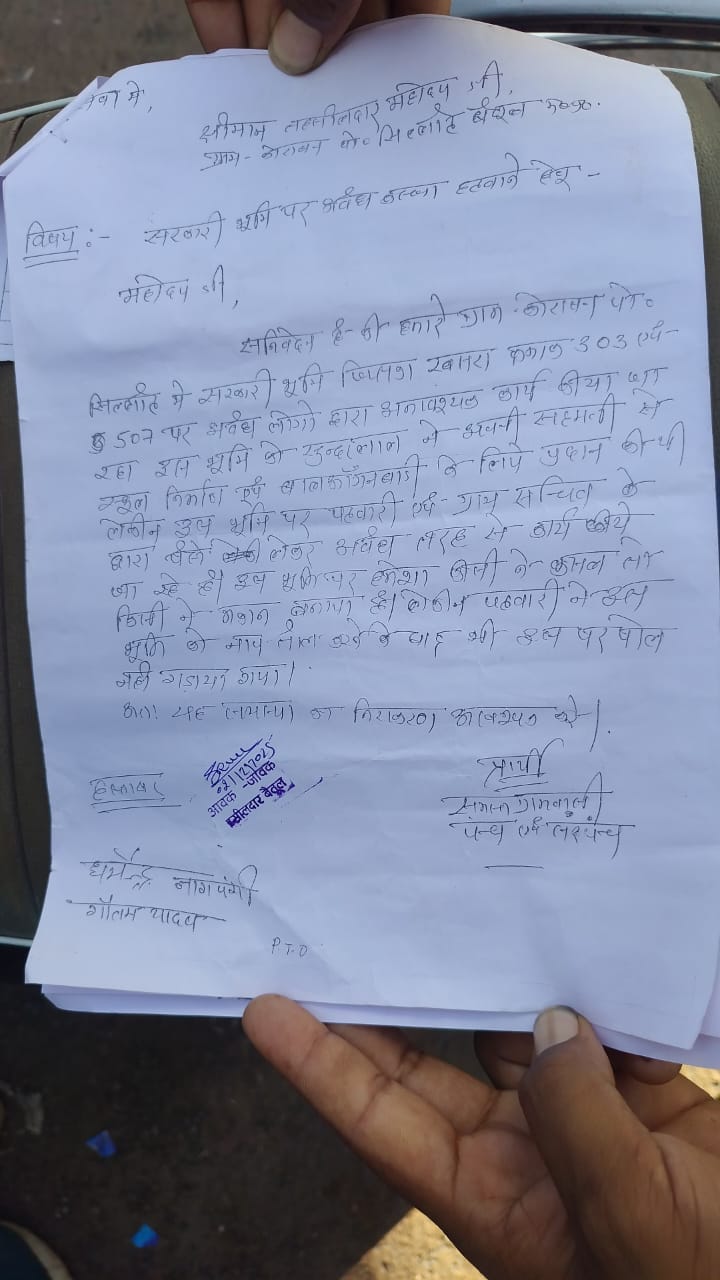 सेवा में,
श्रीमान तहसीलदार महोदय जी,
ग्राम - कोरावन पो०
विषय :- सरकारी भूमि पर अवैध कब्जा हटवाने हेतु -
महोदय जी,
सविवेदन है की हमारे ग्राम कोरावन पो०
में सरकारी भूमि जिसका खसरा क्रमांक 303 एवं
507 पर अवैध लोगो द्वारा अनावश्यक कार्य कीया जा
रहा इस भूमि को ने अपनी सहमती से
स्कूल निर्माण एवं के लिये प्रदान की थी
लेकीन इस भूमि पर पटवारी एवं ग्राम सचिव के
द्वारा पैसे लेकर अवैध तरह से कार्य कीये
जा रहे है। इस भूमि पर हमेशा कीसी ने फसल तो
किसी ने मकान बनाया है। लेकीन पटवारी ने इस
भूमि को नाप तौल करने के बाद भी इस पर पोल
नही गड़ाया गया।
अतः यह समस्या का निराकरण आवश्यक करे।
प्रार्थी
समस्त ग्रामवासी
पन्च एवं सरपंच
हस्ताक्षर
02/12/2025
आवक - जावक
तहसीलदार बैतूल
धर्मेन्द्र नागवंशी
गौतम यादव
P.T.O